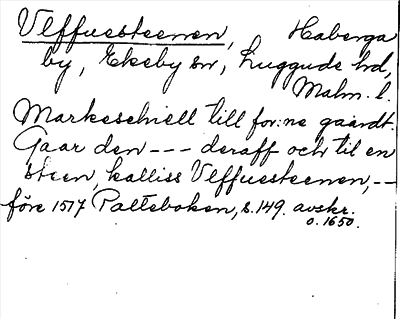 Ulffuesteenen, Haberga
by, Ekeby sn, Luggude hd,
Malm. l.
Markeschiell till for:ne gaardt.
Gaar den --- deraff och til en
steen, kalliss Ulffuesteenen, --
före 1517 Palteboken, s. 149. avskr.
o. 1650.